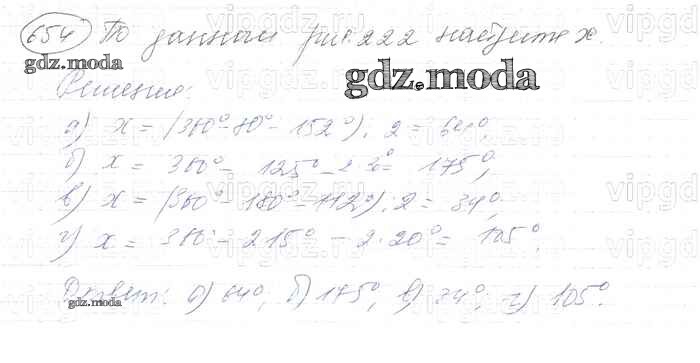 654 По данным рис. 222 найдите x.
gdz.moda
gdz.moda
Решение:
а) x = (360° - 80° - 152°) : 2 = 64°,
б) x = 360° - 125° - 2·30° = 175°,
в) x = (360° - 180° - 112°) : 2 = 34°,
г) x = 360° - 215° - 2·20° = 105°.
Ответ: а) 64°, б) 175°, в) 34°, г) 105°.
gdz.moda